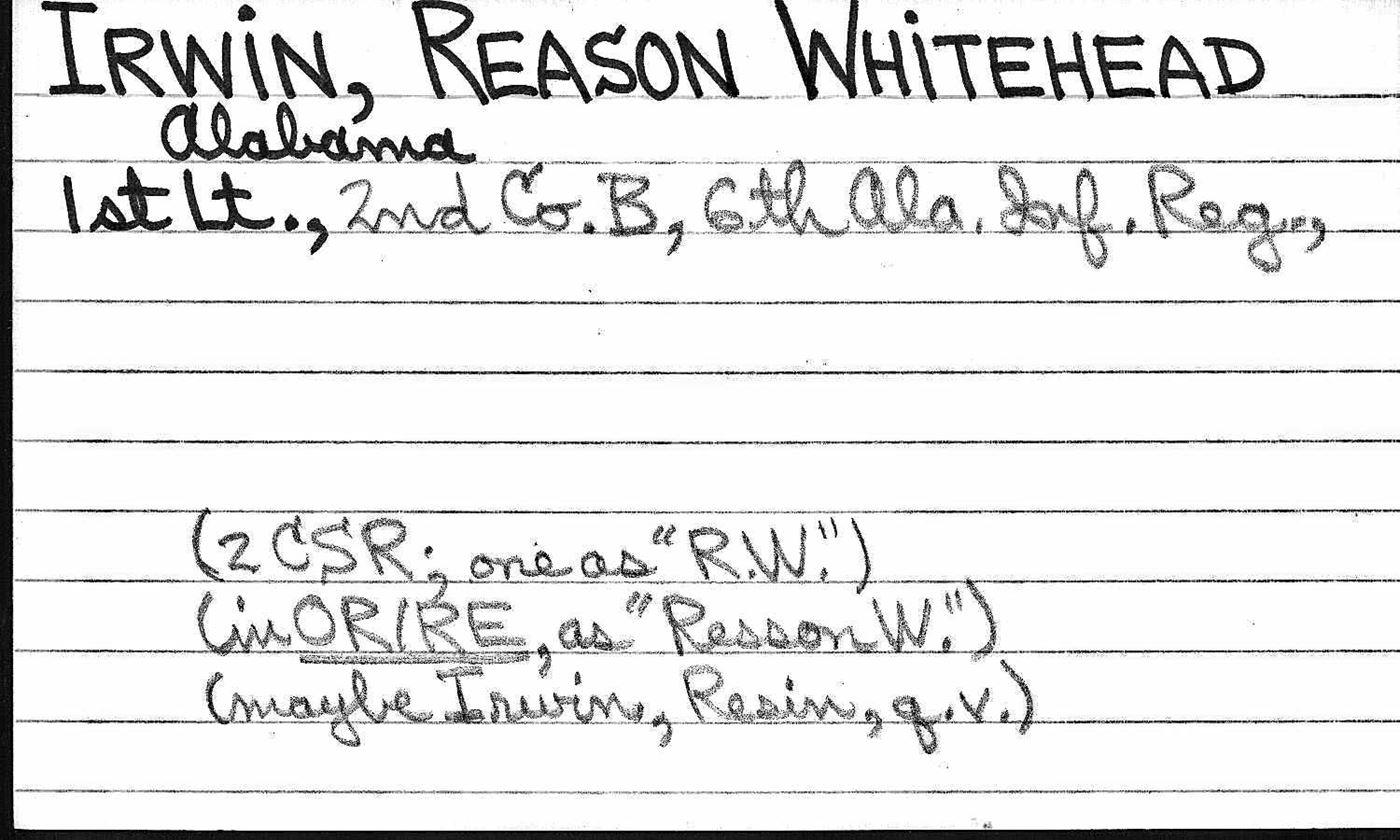 IRWIN, REASON WHITEHEAD
Alabama
1st Lt., 2nd Co. B, 6th Ala. Inf. Reg.,
(2 CSR; one as "R.W.")
(in OR/RE, as "Resson W.")
(maybe Irwin, Resin, q.v.)